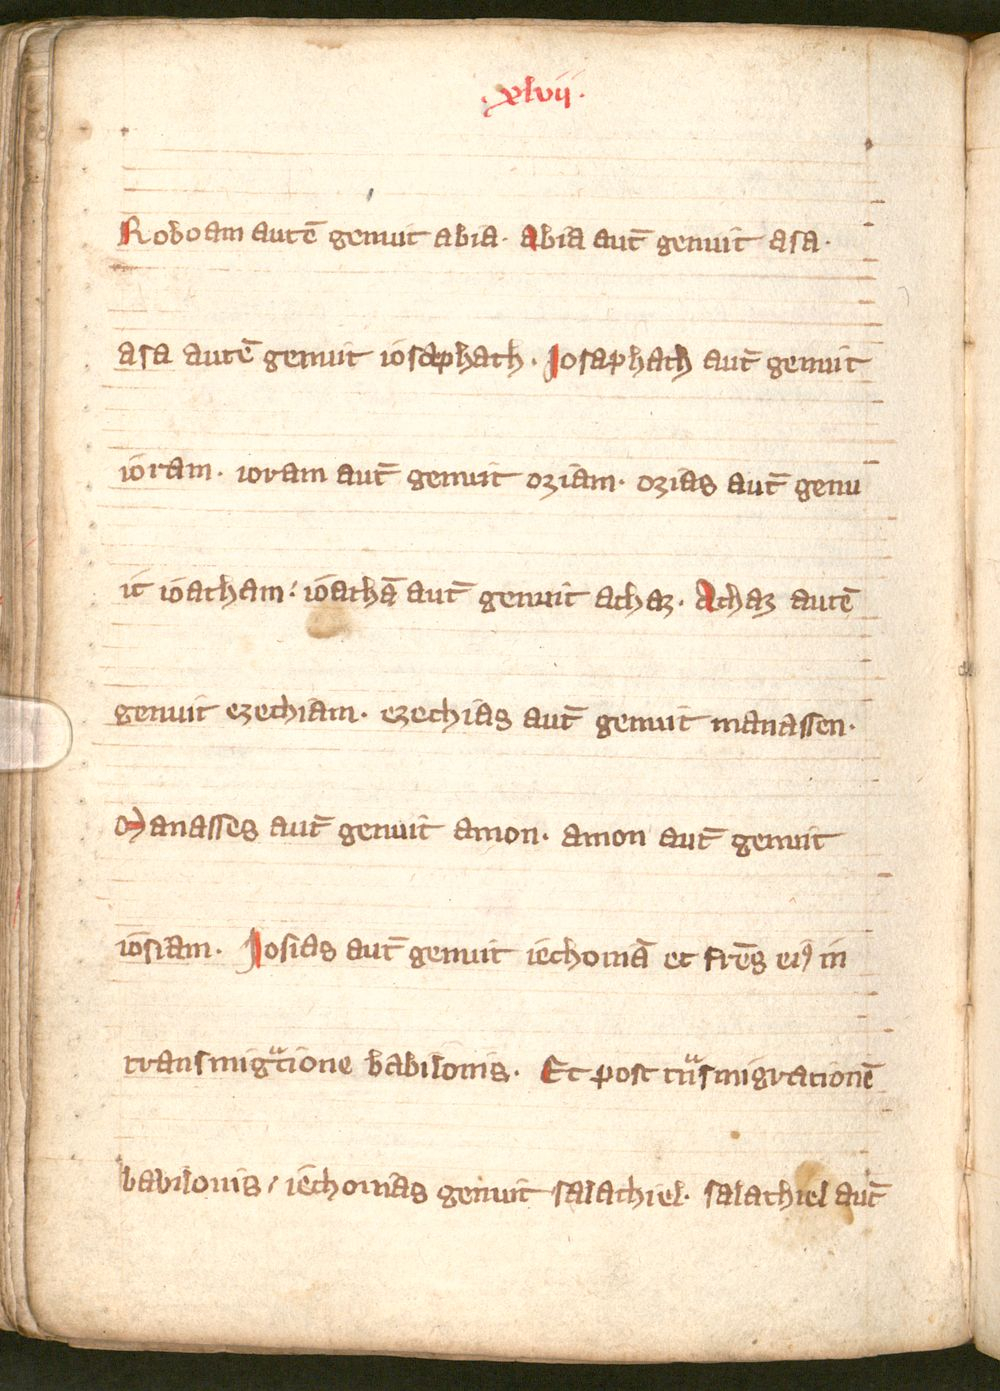 .xlvii.
Roboam autē genuit abia. abia aut̄ genuit asa.
asa autē genuit iosaphath. Iosaphath aut̄ genuit
ioram. ioram aut̄ genuit oziam. ozias aut̄ genu
it ioatham: ioathā aut̄ genuit achaz. Achaz autē
genuit ezechiam. ezechias aut̄ genuit manassen.
Manasses aut̄ genuit amon. amon aut̄ genuit
iosiam. Iosias aut̄ genuit iechoniā et fr̄es eiꝰ in
transmigᷓtione babilonis. Et post tᷓnsmigrationē
babilonis / iechonias genuit salathiel. salathiel aut̄